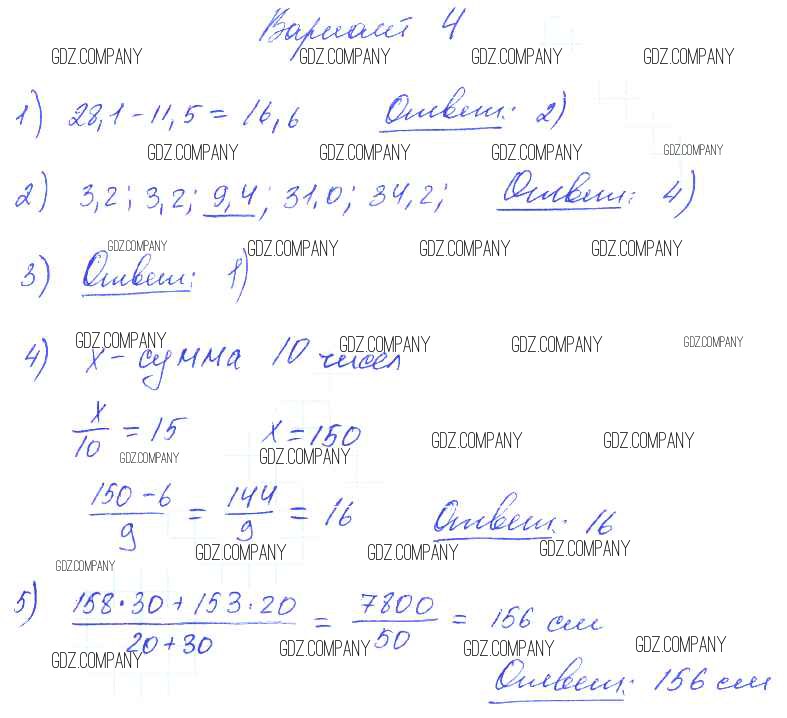 Вариант 4
GDZ.COMPANY GDZ.COMPANY GDZ.COMPANY GDZ.COMPANY
1) 28,1 - 11,5 = 16,6 Ответ: 2)
GDZ.COMPANY GDZ.COMPANY GDZ.COMPANY GDZ.COMPANY
2) 3,2; 3,2; 9,4; 31,0; 34,2; Ответ: 4)
GDZ.COMPANY GDZ.COMPANY GDZ.COMPANY GDZ.COMPANY
3) Ответ: 1)
GDZ.COMPANY GDZ.COMPANY GDZ.COMPANY GDZ.COMPANY
4) x - сумма 10 чисел
x/10 = 15 x = 150
GDZ.COMPANY GDZ.COMPANY GDZ.COMPANY GDZ.COMPANY
(150 - 6)/9 = 144/9 = 16 Ответ: 16
GDZ.COMPANY GDZ.COMPANY GDZ.COMPANY GDZ.COMPANY
5) (158 · 30 + 153 · 20)/(20 + 30) = 7800/50 = 156 см
GDZ.COMPANY GDZ.COMPANY GDZ.COMPANY GDZ.COMPANY
Ответ: 156 см